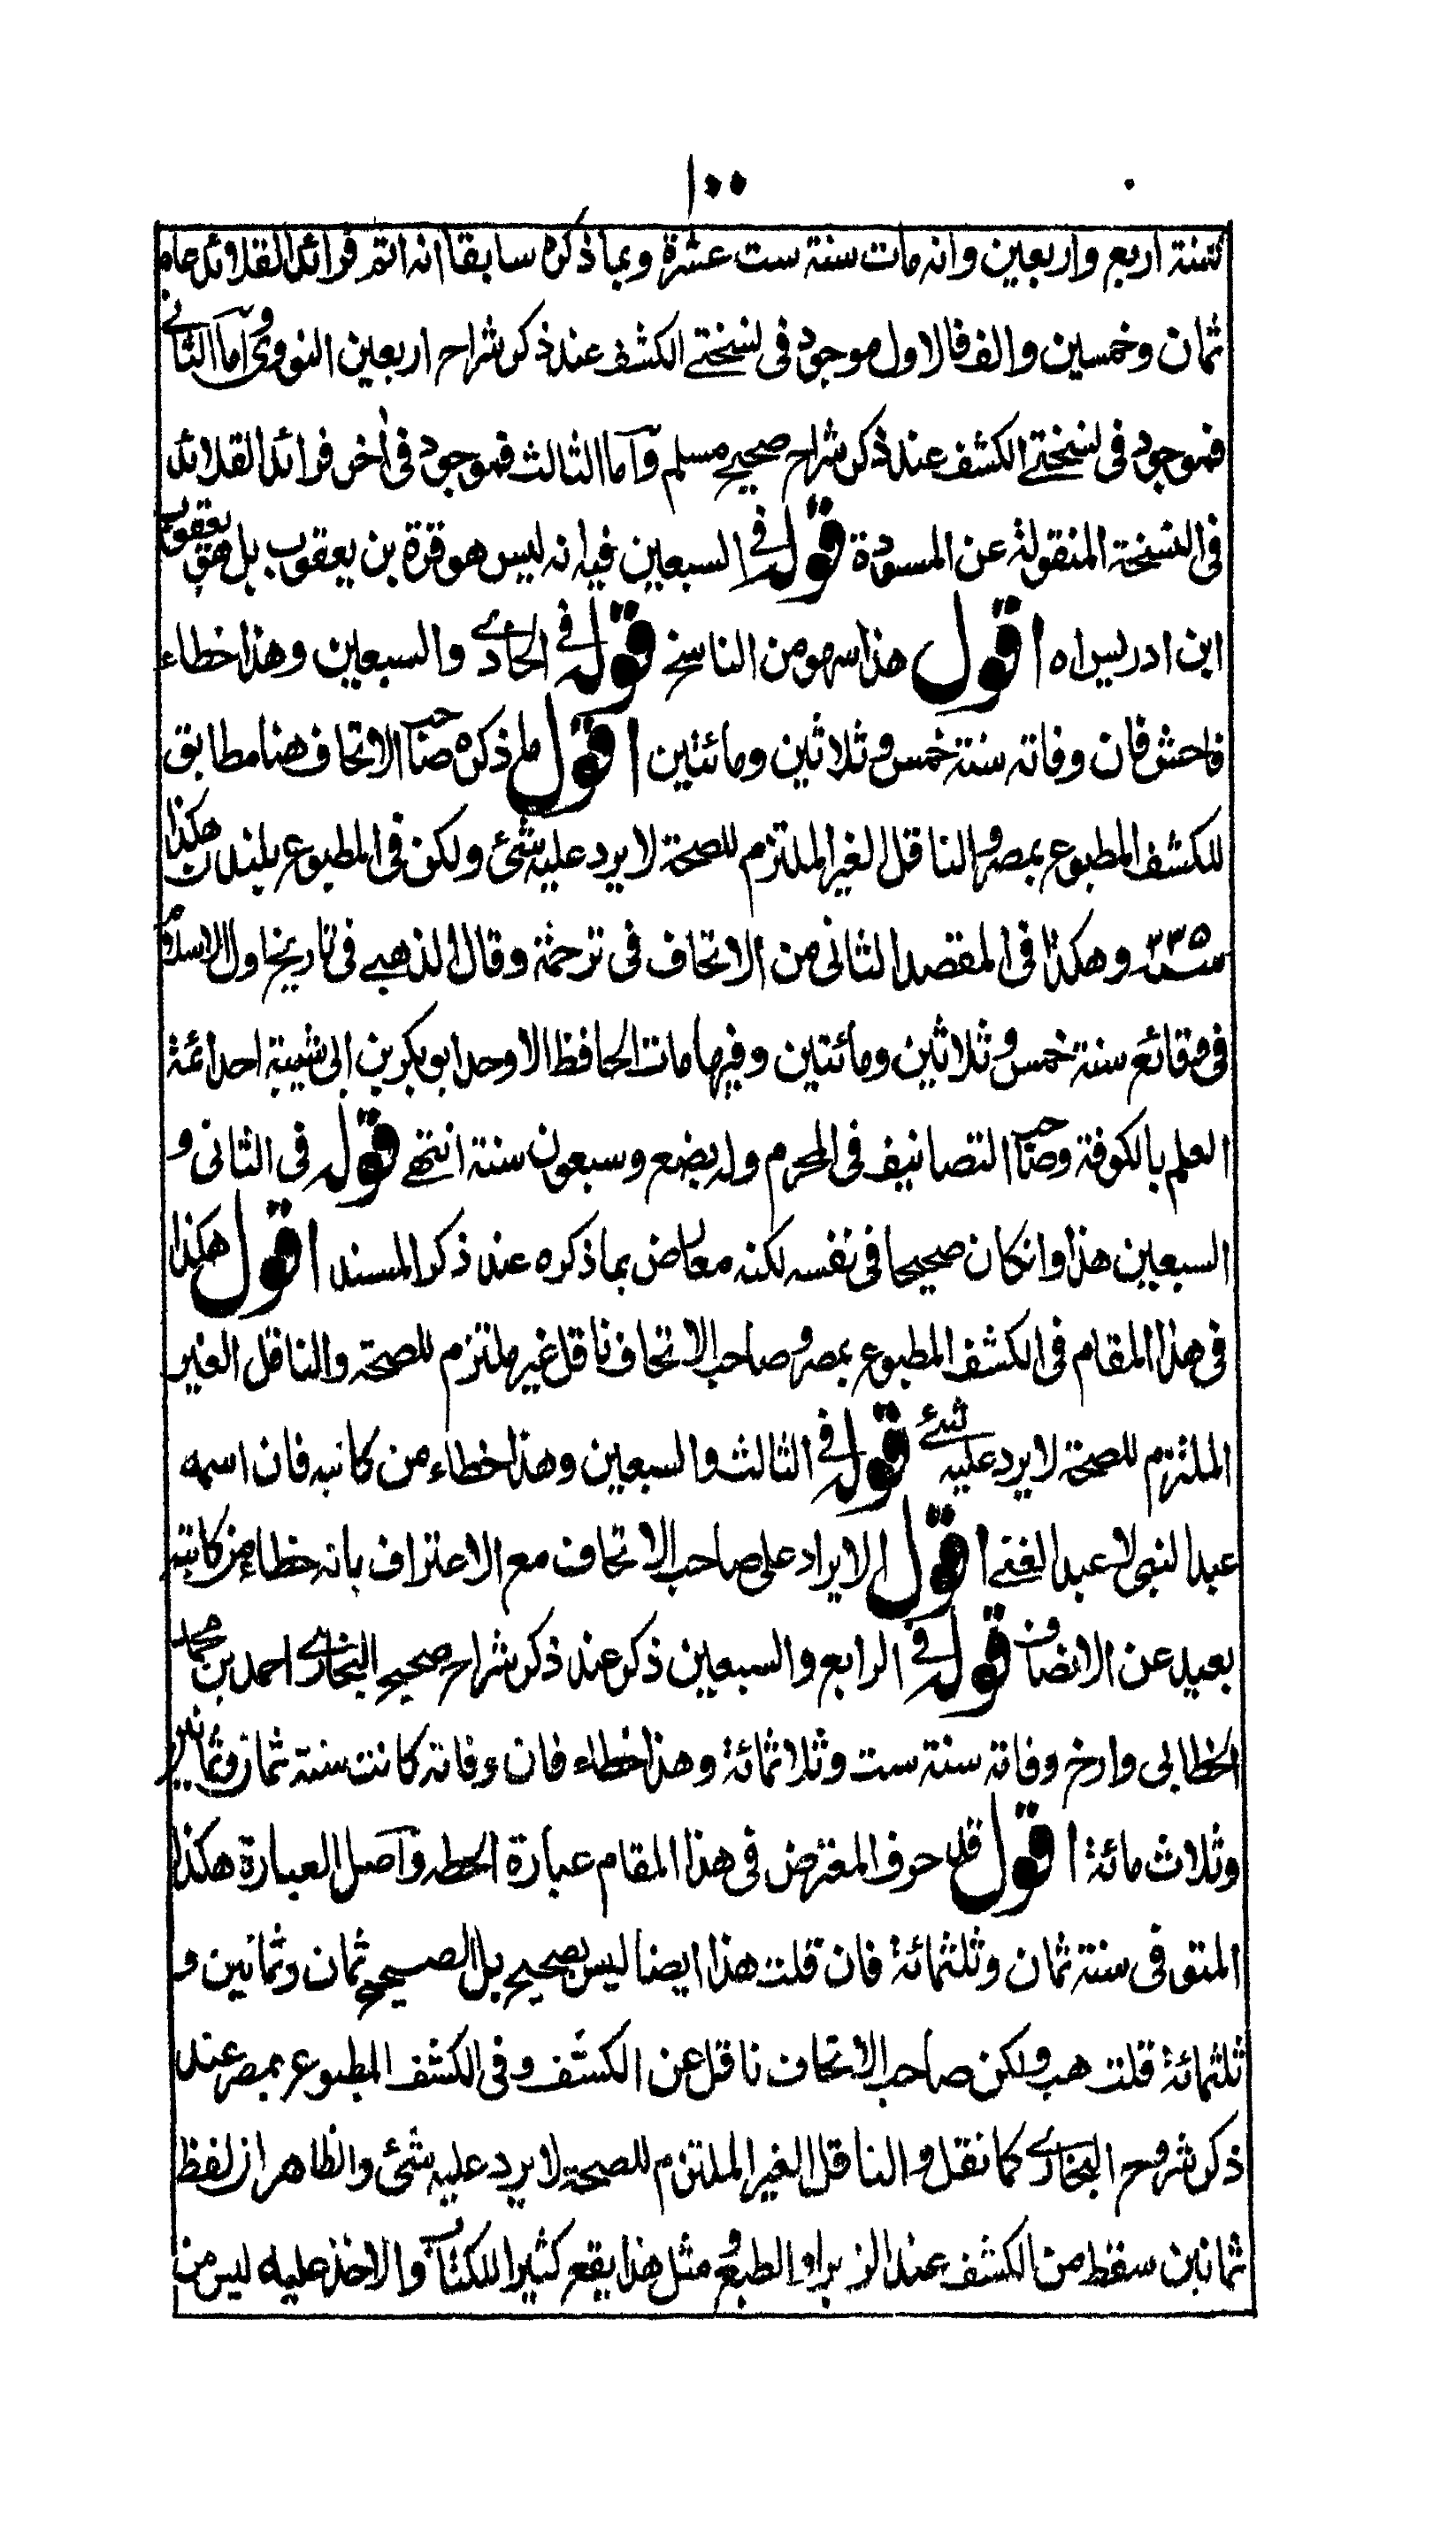 ١٠٠
سنة اربع واربعين وانه مات سنة ست عشرة وبما ذكره سابقا انه اتم فرائد القلائد عام
ثمان وخمسين والف فالاول موجود فى نسختے الكشف عند ذكر شراح اربعين النووى وآما الثانے
فموجود فى نسختے الكشف عند ذكر شراح صحيح مسلم وآما الثالث فموجود فى اخر فرائد القلائد
فى النسخة المنقولة عن المسودة قوله فے السبعين فيه انه ليس هو قرة بن يعقوب بل هو يعقوب
ابن ادريس اه اقول هذا سهو من الناسخ قوله فے الحادے والسبعين وهذا خطاء
فاحش فان وفاته سنة خمس وثلاثين ومائتين اقول ما ذكره صاحب الاتحاف هنا مطابق
للكشف المطبوع بمصر والناقل الغير الملتزم للصحة لا يرد عليه شئ ولكن فى المطبوع بلندن هكذا
سنة ٢٣٥ وهكذا فى المقصد الثانى من الاتحاف فى ترجمة وقال الذهبے فى تاريخ دول الاسلام
فى وقائع سنة خمس وثلاثين ومائتين وفيها مات الحافظ الاوحد ابو بكر بن ابى شيبة احد ائمة
العلم بالكوفة وصاحب التصانيف فى المحرم وله بضع وسبعون سنة انتهے قوله فى الثانى و
السبعين هذا وانكان صحيحا فى نفسه لكنه معارض بما ذكره عند ذكر المسند اقول هكذا
فى هذا المقام فى الكشف المطبوع بمصر وصاحب الاتحاف ناقل غير ملتزم للصحة والناقل الغير
الملتزم للصحة لا يرد عليه شئے قوله فے الثالث والسبعين وهذا خطاء من كاتبه فان اسمه
عبد النبى لا عبد الغنے اقول الايراد على صاحب الاتحاف مع الاعتراف بانه خطاء من كاتبه
بعيد عن الانصاف قوله فے الرابع والسبعين ذكر عند ذكر شراح صحيح البخارے احمد بن محمد
الخطابى وارخ وفاته سنة ست وثلاثمائة وهذا خطاء فان وفاته كانت سنة ثمان وثمانين
وثلاث مائة اقول قد حرف المعترض فى هذا المقام عبارة الحطه وآصل العبارة هكذا
المتوفى سنة ثمان وثلثمائة فان قلت هذا ايضا ليس بصحيح بل الصحيح ثمان وثمانين و
ثلثمائة قلت هب ولكن صاحب الاتحاف ناقل عن الكشف وفى الكشف المطبوع بمصر عند
ذكر شروح البخارے كما نقل والناقل الغير الملتزم للصحة لا يرد عليه شئ والظاهر ان لفظ
ثمانين سقط من الكشف عند الزبر او الطبع ومثل هذا يقع كثيرا للكتاب والاخذ عليه ليس من